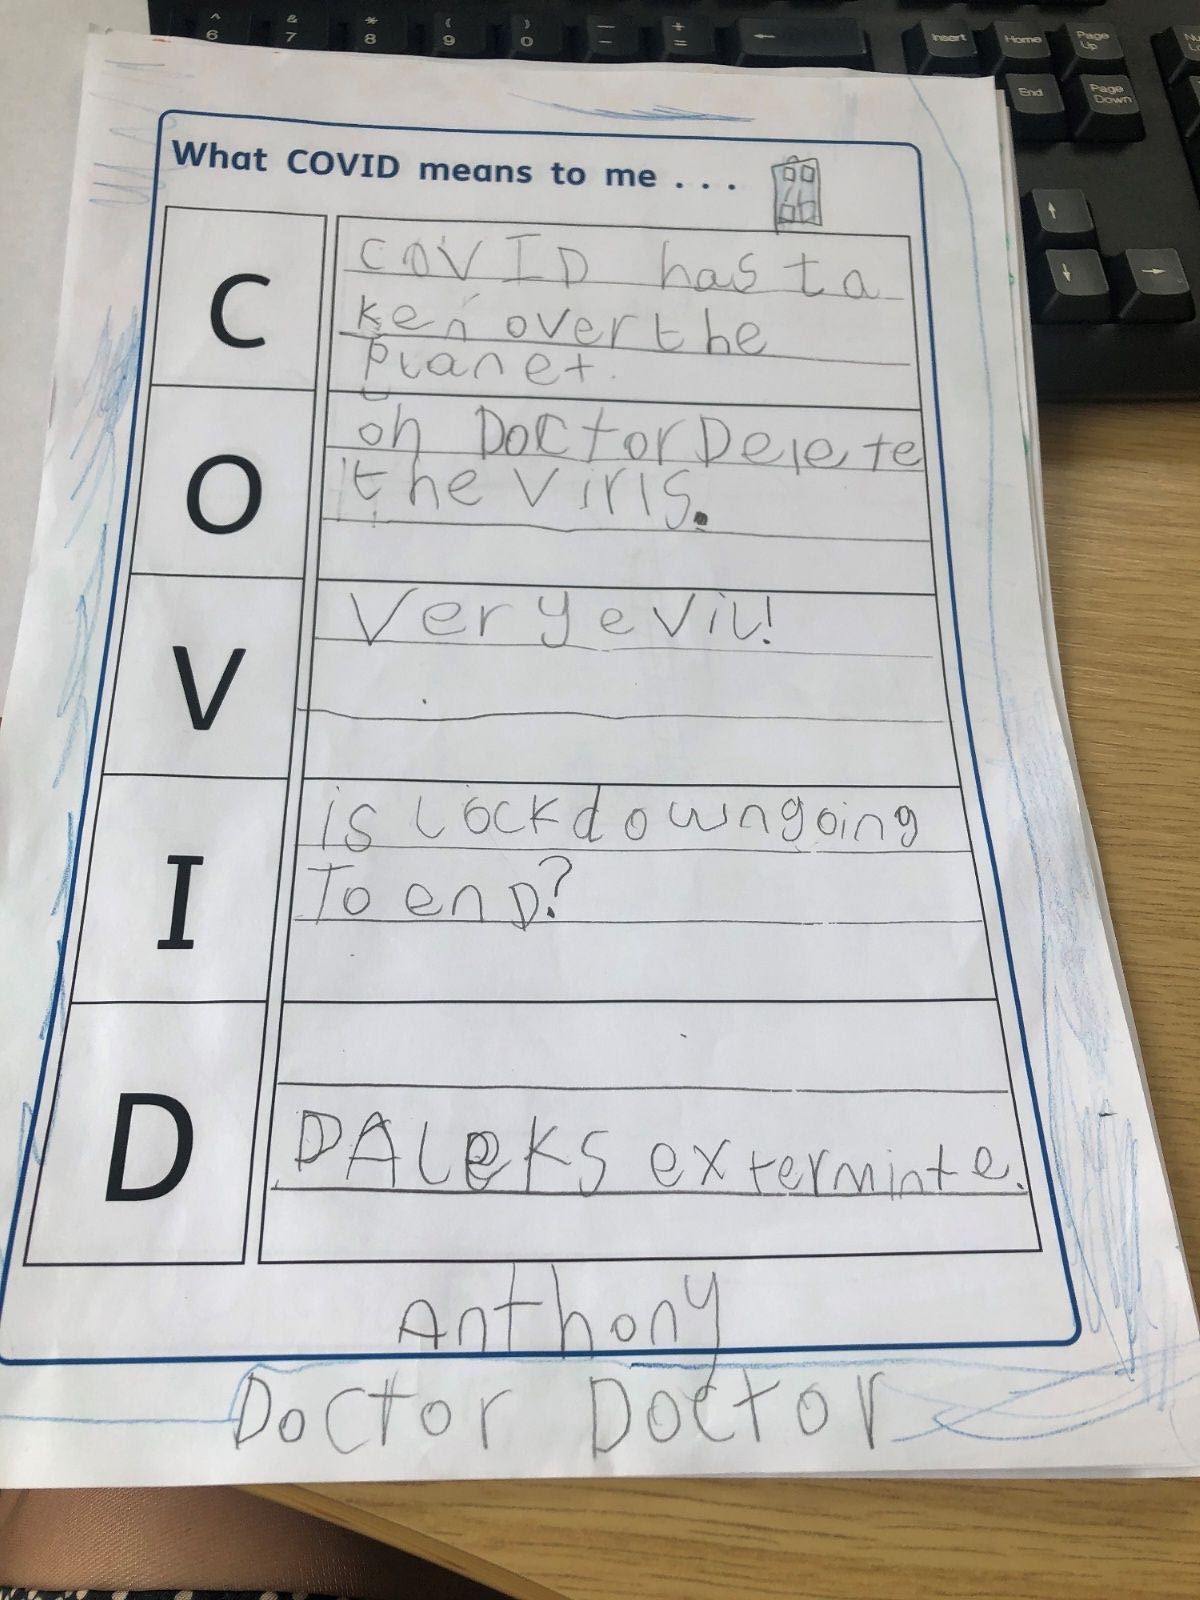 ^ & * ( ) _ +
6 7 8 9 0 - = ←
Insert Home Page Up
End Page Down
↑
↓ →
What COVID means to me . . .
C
COVID has ta
ken over the
Planet.
O
oh Doctor Delete
the Viris.
V
Very eVil!
I
is Lockdown going
To enD?
D
DALeKS exterminte.
Anthony
Doctor Doctor